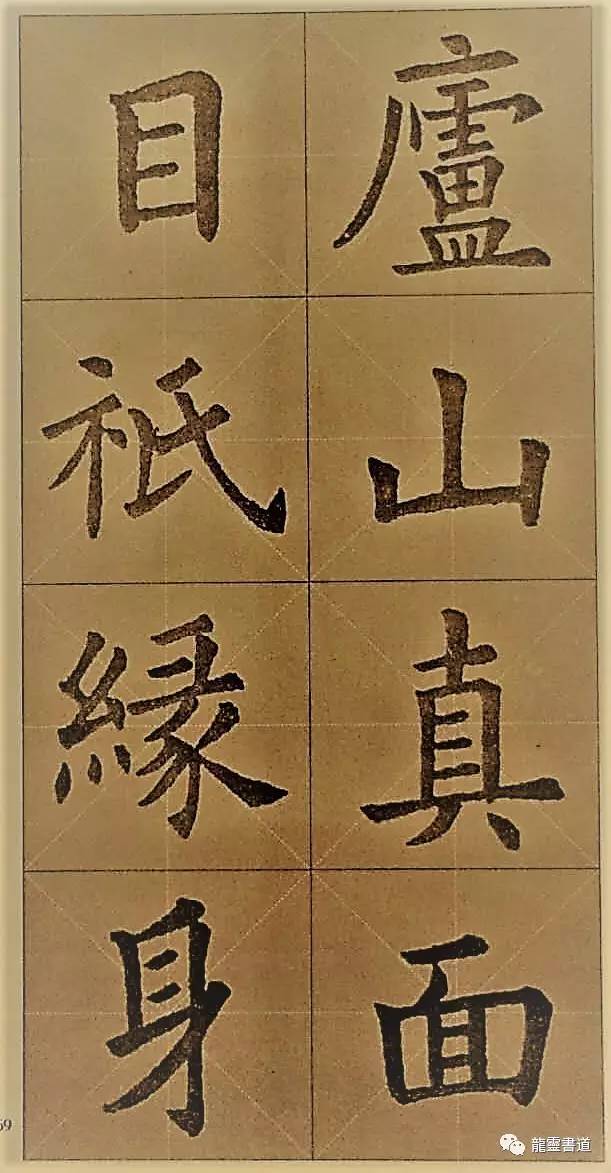 廬山真面
目祇緣身
69
龍靈書道